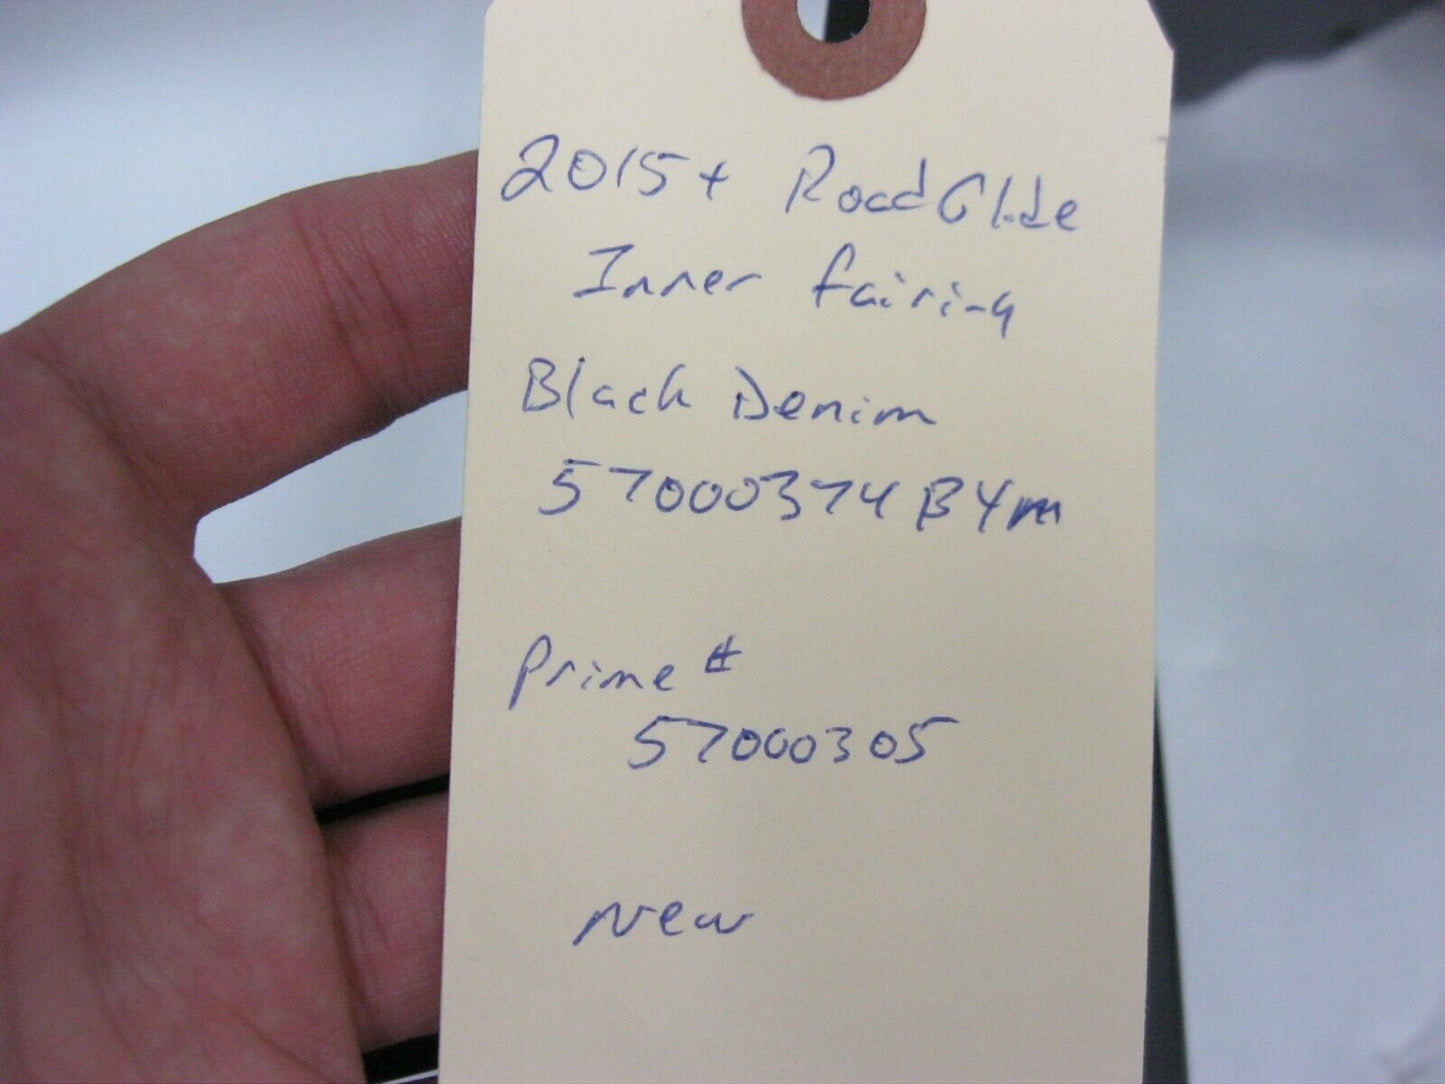 2015+ Road Glide
Inner fairing
Black Denim
57000374BYM
Prime #
57000305
New